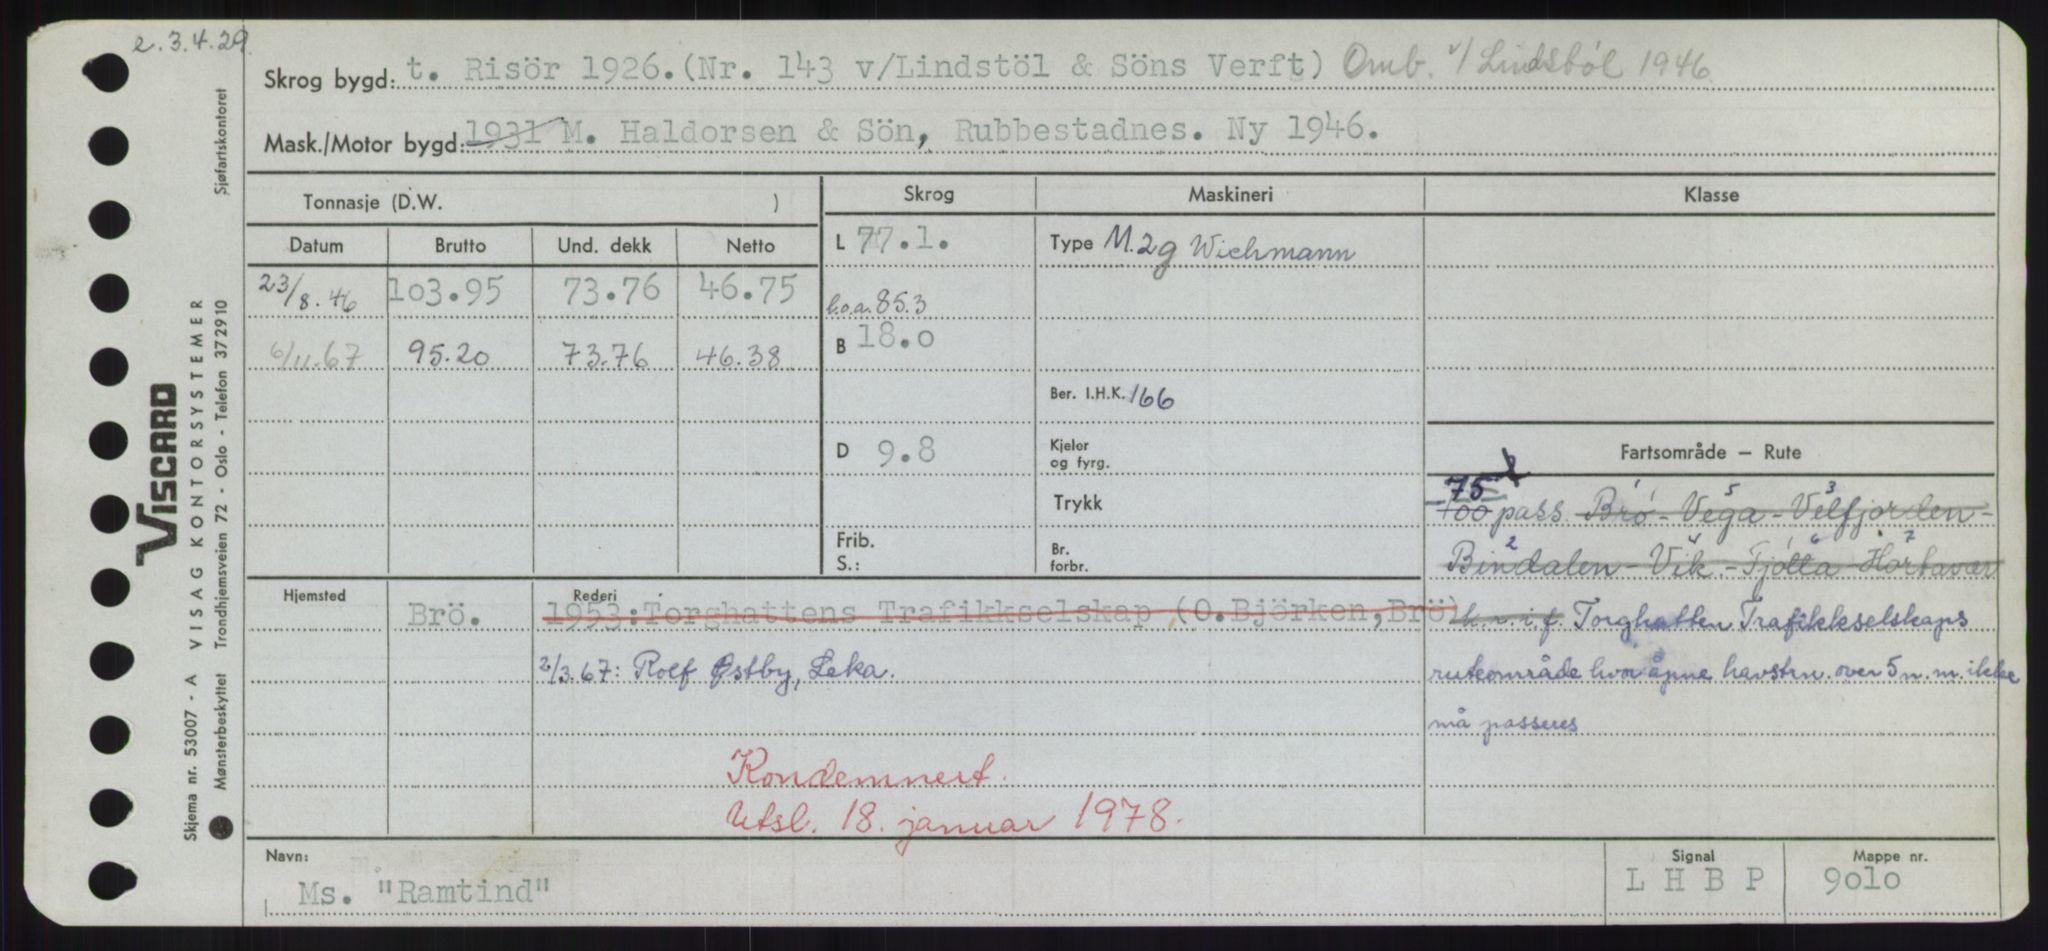 e. 3.4.29
Skrog bygd: t. Risör 1926.(Nr. 143 v/Lindstöl & Söns Verft) Omb. v/ Lindstöl 1946
Mask./Motor bygd: 1931 M. Haldorsen & Sön, Rubbestadnes. Ny 1946.
Tonnasje (D.W. )
Skrog Maskineri Klasse
Datum Brutto Und. dekk Netto
L 77.1. Type M. 2g Wichmann
23/8.46 103.95 73.76 46.75
l.o.a. 85.3
B 18.0
6/11.67 95.20 73.76 46.38
Ber. I.H.K. 166
D 9.8
Kjeler
og fyrg.
Fartsområde – Rute
Trykk
75
100 pass. Brö - Vega - Velfjorden -
1 5 3
Frib.
S.:
Br.
forbr.
Bindalen - Vik. - Tjötta - Hortavær
2 4 6 7
Hjemsted Brö.
Rederi 1953:Torghattens Trafikkselskap (O.Björken,Brö)
i.f. Torghatten Trafikkselskaps
2/3.67: Rolf Østby, Leka.
ruteområde hvor åpne havstrn. over 5 n.m. ikke
må passeres
Kondemnert.
Utsl. 18. januar 1978.
Navn: Ms. "Ramtind"
Signal L H B P
Mappe nr. 9010
Sjøfartskontoret
VISCARD
VISAG KONTORSYSTEMER
Trondhjemsveien 72 - Oslo - Telefon 372910
Skjema nr. 53007 - A
Mønsterbeskyttet